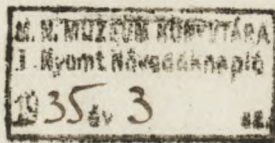 M. N. MUZEUM KÖNYVTÁRA
I. Nyomt. Növedéknapló
1935 év 3 sz.